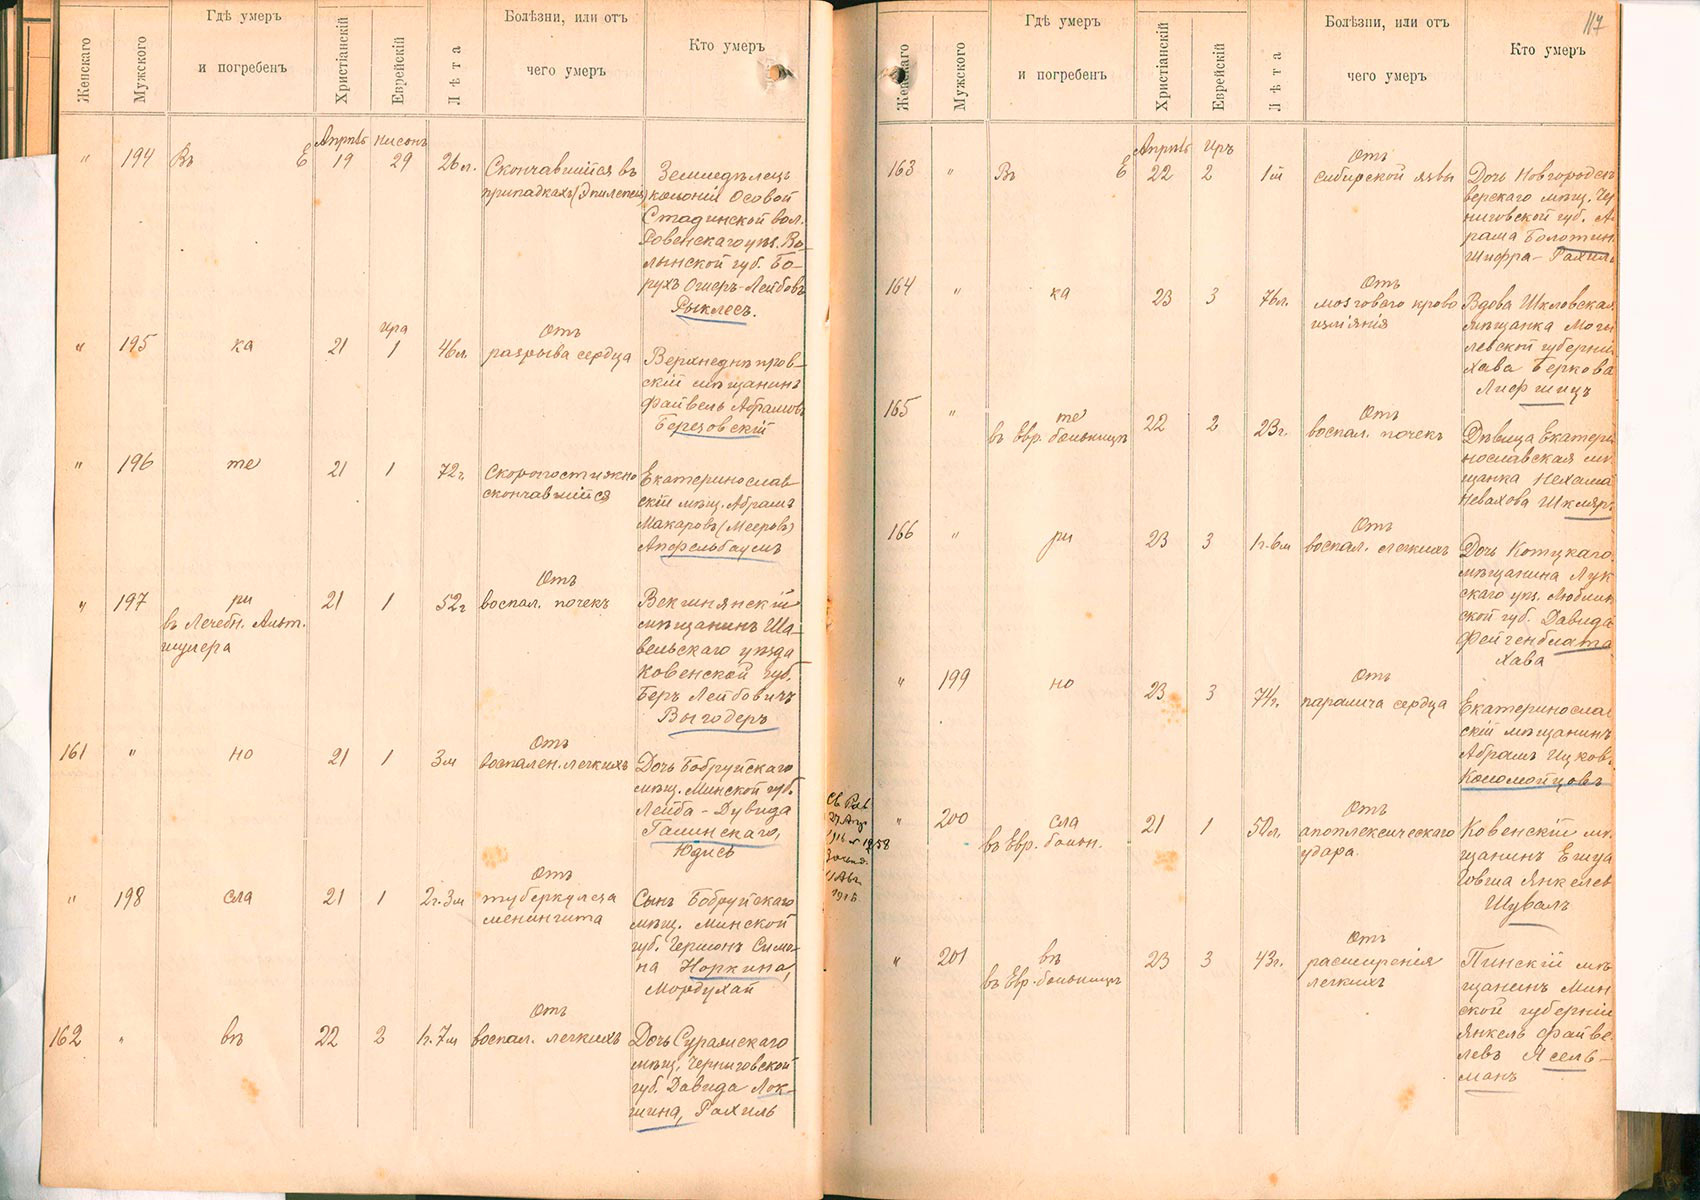 Женскаго
Мужского
Гдѣ умеръ
и погребенъ
Христіанскій
Еврейскій
Лѣта
Болѣзни, или отъ
чего умеръ
Кто умеръ
Апрѣль Нисонъ
" 194 Въ Е 19 29 26 л.
Скончавшійся въ
припадкахъ (Эпилепсія)
Земледѣлецъ
колоніи Осовой
Стадинской вол.
Ровенскаго уѣз. Во-
лынской губ. Бо-
рухъ Ошеръ-Лейбовъ
Рыклесъ.
Ира
" 195 ка 21 1 46 л.
Отъ
разрыва сердца
Верхнеднѣпров-
скій мѣщанинъ
Файвель Абрамовъ
Березовскій
" 196 те 21 1 72 г.
Скоропостижно
скончавшійся
Екатеринослав
скій мѣщ. Абрамъ
Макаровъ (Мееровъ)
Апфельбаумъ
" 197 ри 21 1 52 г
въ Лечебн. Альт.
шулера
Отъ
воспал. почекъ
Векшнянскій
мѣщанинъ Ша-
вельскаго уѣзда
Ковенской губ.
Беръ Лейбовичъ
Выгодеръ
161 " но 21 1 3 м
Отъ
воспален. легкихъ
Дочь Бобруйскаго
мѣщ. Минской губ.
Лейба-Дувида
Галинскаго,
Юдись
" 198 сла 21 1 2 г. 3 м
Отъ
туберкулеза
менингита
Сынъ Бобруйскаго
мѣщ. Минской
губ. Гершонъ Симо-
на Норкина,
Мордухай
162 " въ 22 2 1 г. 7 м
Отъ
воспал. легкихъ
Дочь Суражскаго
мѣщ. Черниговской
губ. Давида Лок-
шина, Рахиль
117
Женскаго
Мужского
Гдѣ умеръ
и погребенъ
Христіанскій
Еврейскій
Лѣта
Болѣзни, или отъ
чего умеръ
Кто умеръ
Апрѣль Иръ
163 " Въ Е 22 2 1 й
Отъ
сибирской язвы
Дочь Новгородсѣ
верскаго мѣщ. Чер
ниговской губ. Аб
рама Болотин
Шифра-Рахиль
164 " ка 23 3 76 л.
Отъ
мозгового крово
изліянія
Вдова Шкловская
мѣщанка Моги
левской губерніи
Хава Беркова
Лифшицъ
165 " те 22 2 23 г.
въ Евр. больницѣ
Отъ
воспал. почекъ
Дѣвица Екатери
нославская мѣ
щанка Нехама
Невахова Шкляръ
166 " ри 23 3 1 г. 6 м
Отъ
воспал. легкихъ
Дочь Котцкаго
мѣщанина Лук
скаго уѣз. Люблин
ской губ. Давида
Фейгенблата
Хава
" 199 но 23 3 74 г.
Отъ
паралича сердца
Екатеринослав
скій мѣщанинъ
Абрамъ Ицков.
Коломойцовъ
" 200 сла 21 1 50 л.
въ Евр. больн.
Отъ
апоплексическаго
удара.
Ковенскій мѣ
щанинъ
Янкелев
Шувалъ
" 201 въ 23 3 43 г.
въ Евр. больницѣ
Отъ
расширенія
легкихъ
Пинскій мѣ
щанинъ Мин
ской губерніи
Янкель Файве-
левъ Ясель-
манъ